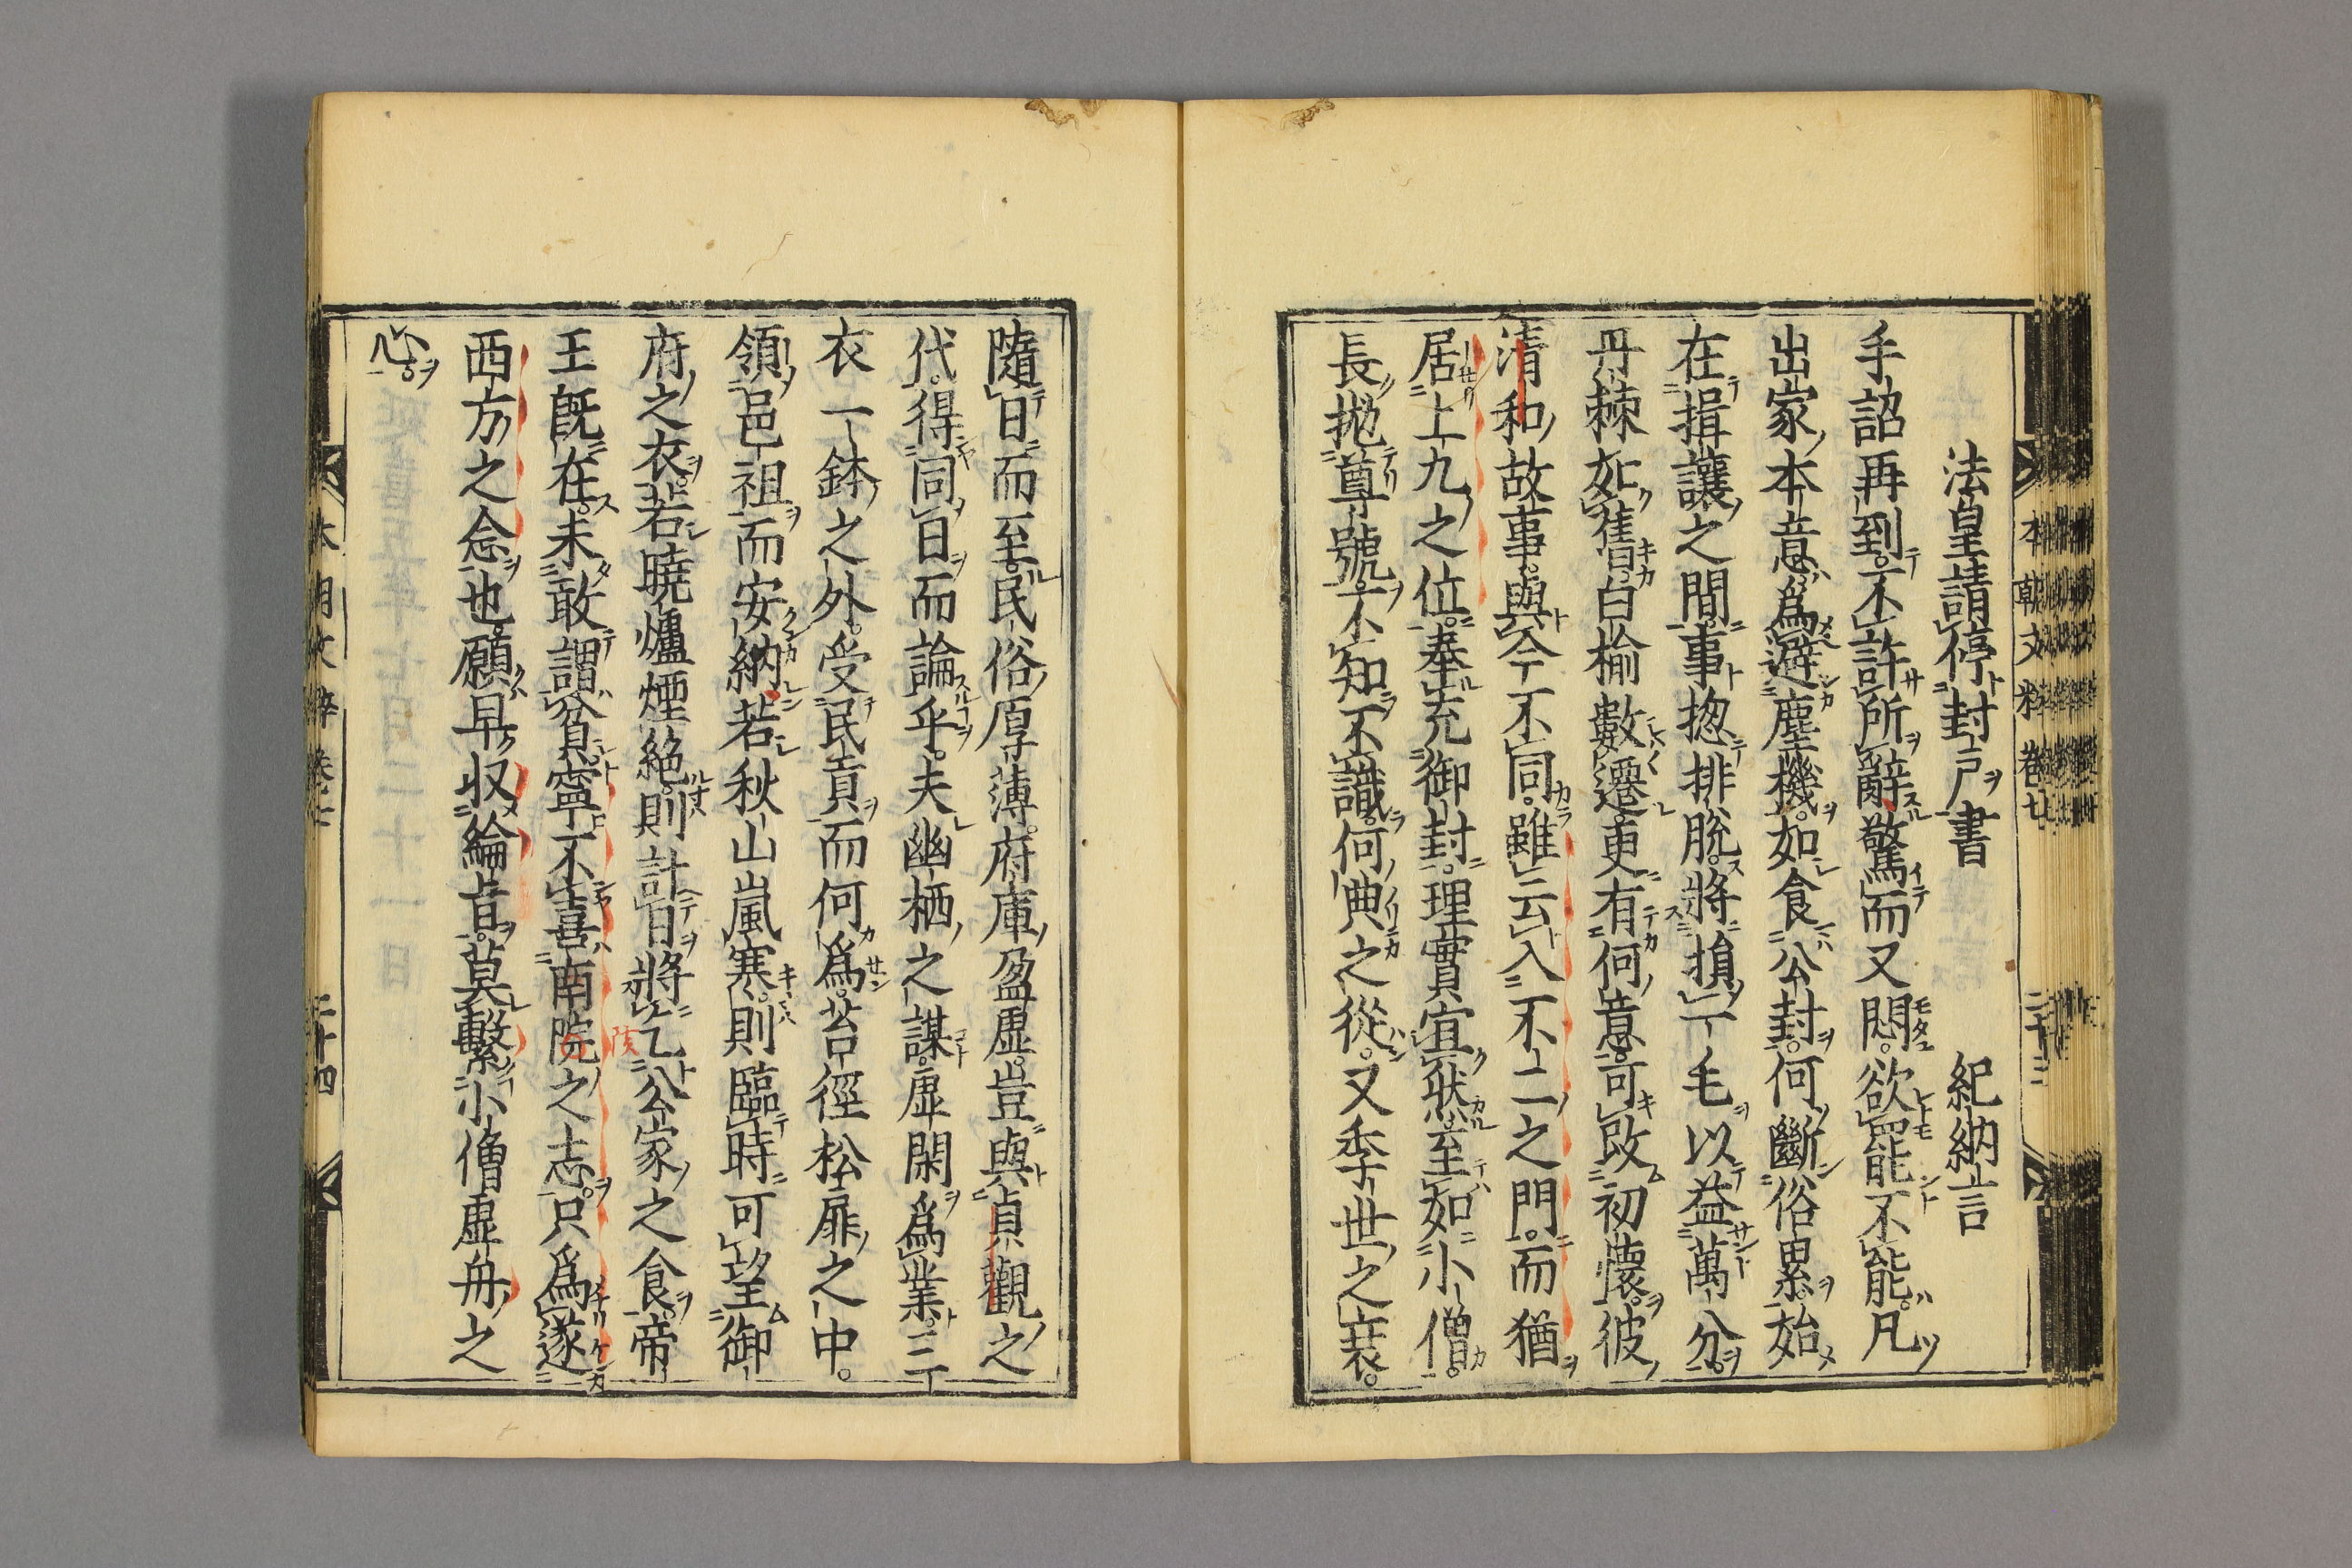 法皇請停封戸書 紀納言
手詔再到不許所辭驚而又悶欲罷不能凡
出家本意爲避塵機如食公封何斷俗累始
在揖讓之間事揔排脱將損一毛以益萬分
丹棘如舊白楡數遷更有何意可改初懷彼
清和故事與今不同雖云入不二之門而猶
居上九之位奉充御封理實宜然至如小僧
長抛尊號不知不識何典之從又季世之衰
隨日而至民俗厚薄府庫盈虚豈與貞觀之
代得同日而論乎夫幽栖之謀虚閑爲業三
衣一鉢之外受民貢而何爲苔徑松扉之中
領邑租而安納若秋山嵐寒則臨時可望御
府之衣若曉爐煙絶則計日將乞公家之食帝
王既在未敢謂貧寧不喜南院之志只爲遂
西方之念也願早収綸旨莫繫小僧虚舟之
心
本朝文粹 卷七
二十四